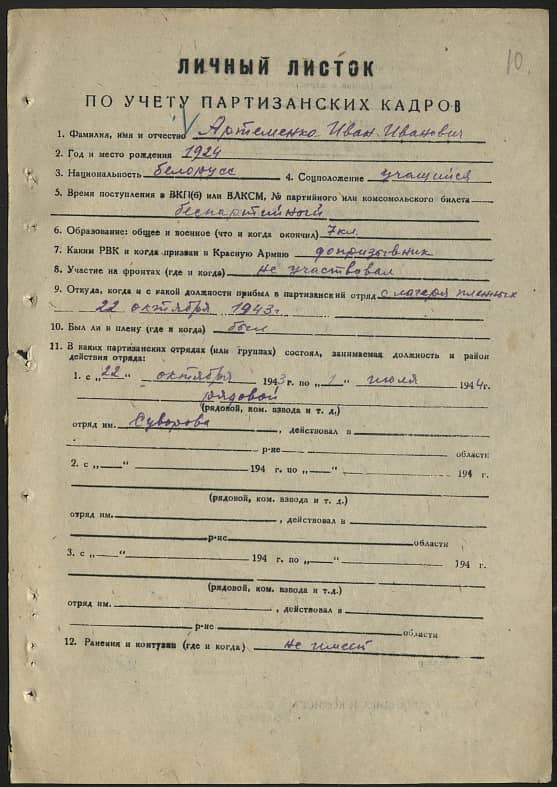 10.
ЛИЧНЫЙ ЛИСТОК
ПО УЧЕТУ ПАРТИЗАНСКИХ КАДРОВ
1. Фамилия, имя и отчество Артеменко Иван Иванович
2. Год и место рождения 1924
3. Национальность белорусс 4. Соцположение учащийся
5. Время поступления в ВКП(б) или ВЛКСМ, № партийного или комсомольского билета
беспартейный
6. Образование: общее и военное (что и когда окончил) 7 кл.
7. Каким РВК и когда призван в Красную Армию допризывник
8. Участие на фронтах (где и когда) не участвовал
9. Откуда, когда и с какой должности прибыл в партизанский отряд с лагеря пленных
22 октября 1943 г.
10. Был ли в плену (где и когда) был
11. В каких партизанских отрядах (или группах) состоял, занимаемая должность и район
действия отряда:
1. с „22“ октября 1943 г. по „1“ июля 1944 г.
рядовой
(рядовой, ком. взвода и т. д.)
отряд им. Суворова, действовал в
р-не области
2. с „—“ 194 г. по „—“ 194 г.
(рядовой, ком. взвода и т. д.)
отряд им. , действовал в
р-не области
3. с „—“ 194 г. по „—“ 194 г.
(рядовой, ком. взвода и т.д.)
отряд им. , действовал в
р-не области
12. Ранения и контузии (где и когда) не имеет